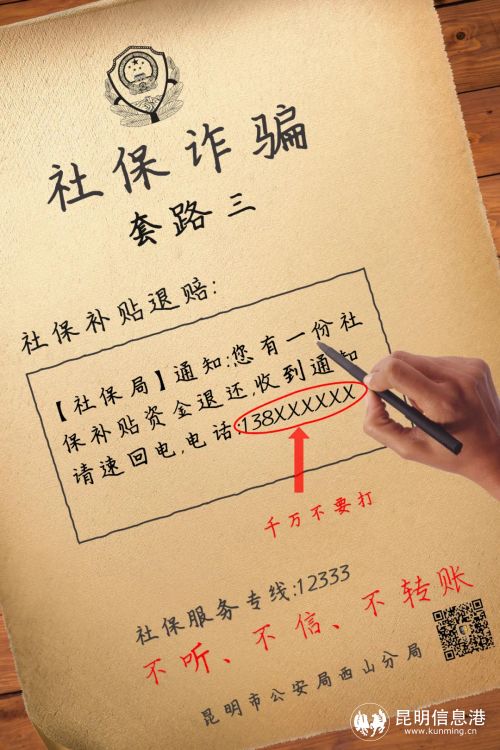 社保诈骗
套路三
社保补贴退赔:
【社保局】通知:您有一份社
保补贴资金退还,收到通知
请速回电,电话:138XXXXXX
千万不要打
社保服务专线:12333
不听、不信、不转账
昆明市公安局西山分局
昆明信息港
www.kunming.cn